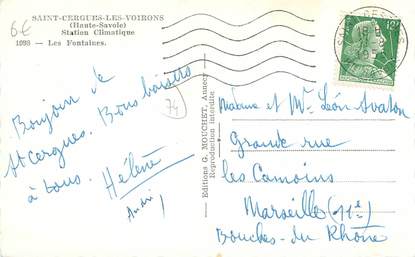 6€
SAINT-CERGUES-LES-VOIRONS
(Haute-Savoie)
Station Climatique
1098 — Les Fontaines.
Bonjour de
St Cergues. Bons baisers
à tous. Hélène
André
74
Editions G. MOUCHET, Annecy
Reproduction interdite
Madame et Mr Léon Avaton
Grande rue
les Camoins
Marseille (11e)
Bouches-du Rhône